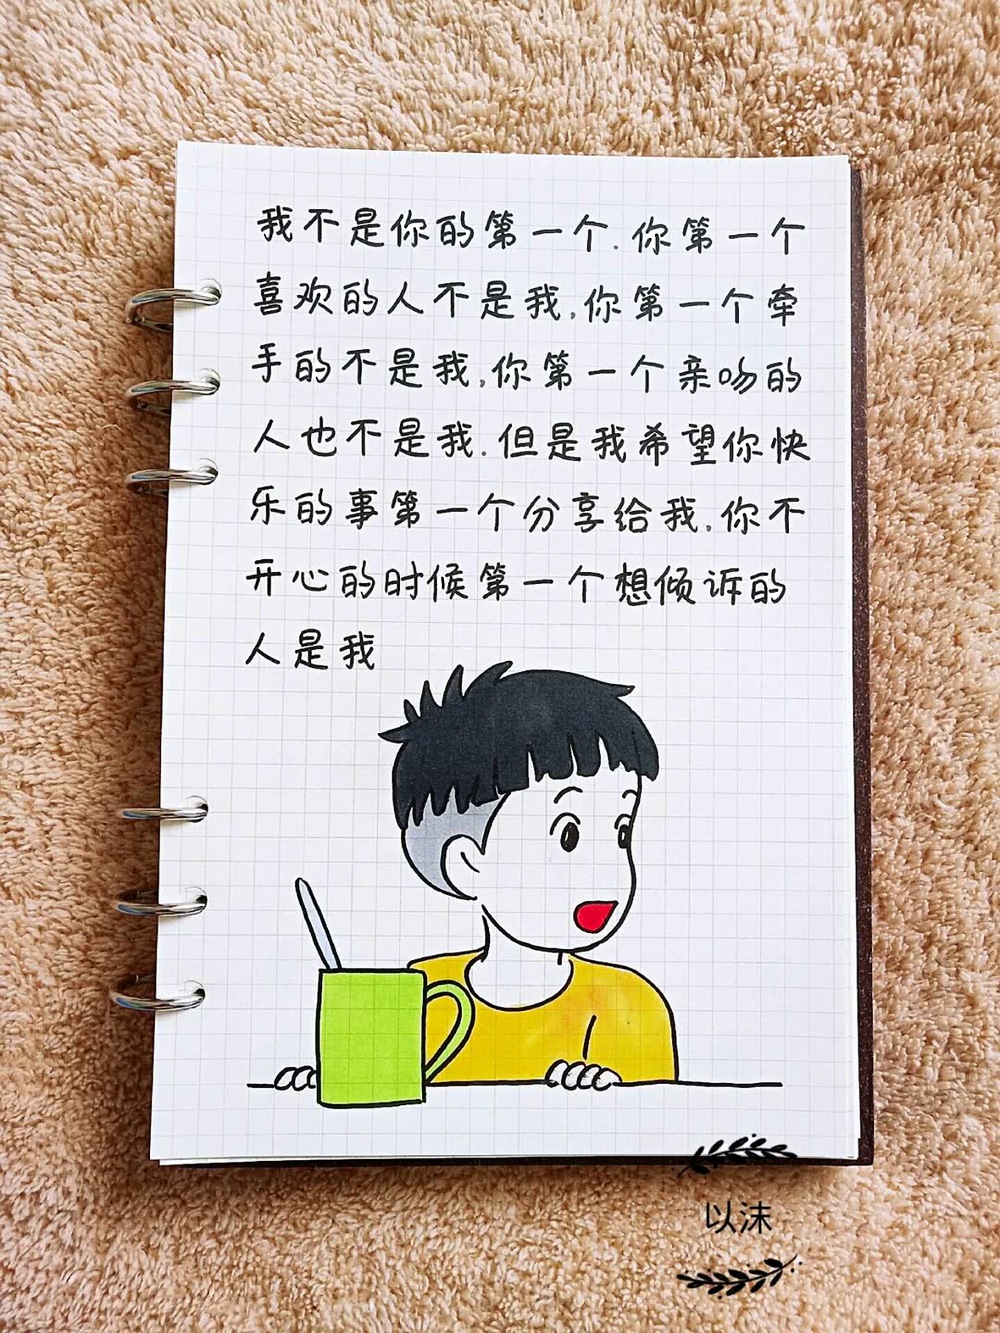 我不是你的第一个.你第一个
喜欢的人不是我,你第一个牵
手的不是我,你第一个亲吻的
人也不是我.但是我希望你快
乐的事第一个分享给我,你不
开心的时候第一个想倾诉的
人是我
以沫